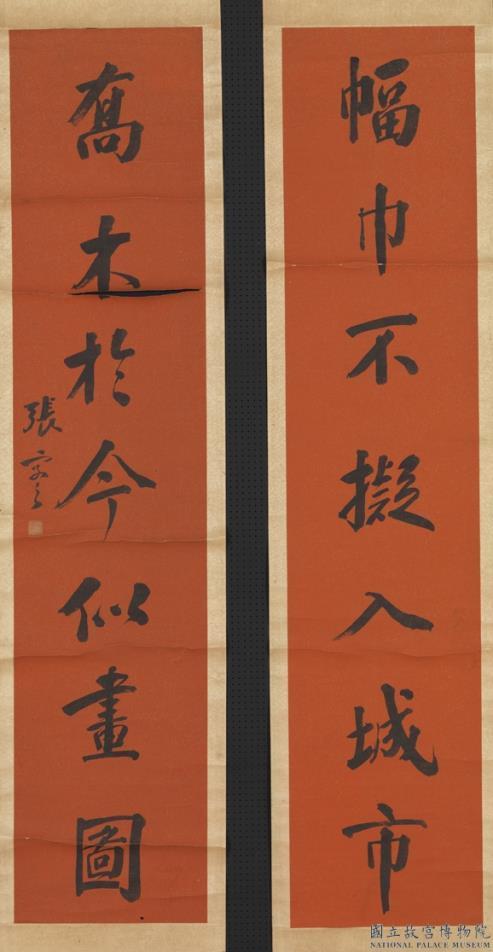 幅巾不擬入城市
喬木於今似畫圖
張寒之
國立故宮博物院
NATIONAL PALACE MUSEUM